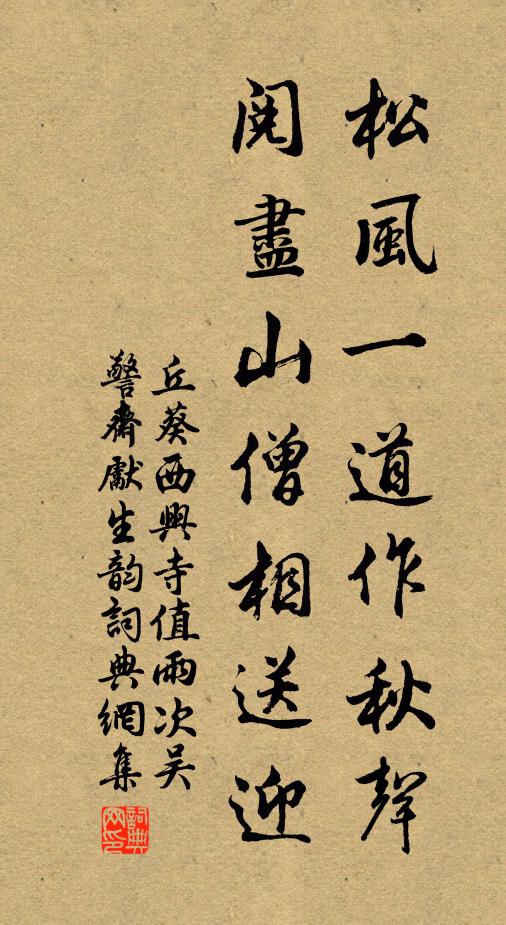 松風一道作秋聲
閱盡山僧相送迎
丘葵西興寺值雨次吳
警齋獻生韵詞典網集
詞典網印